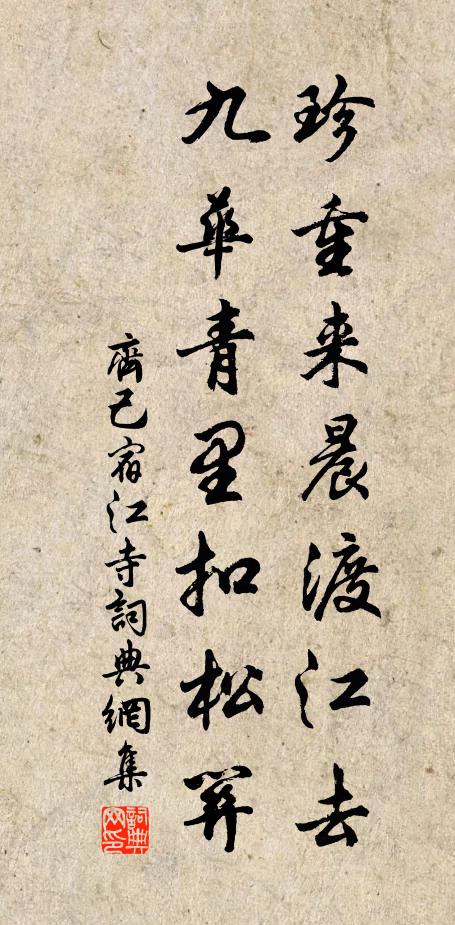 珍重来晨渡江去
九華青里扣松關
齊己宿江寺詞典網集
詞典网印